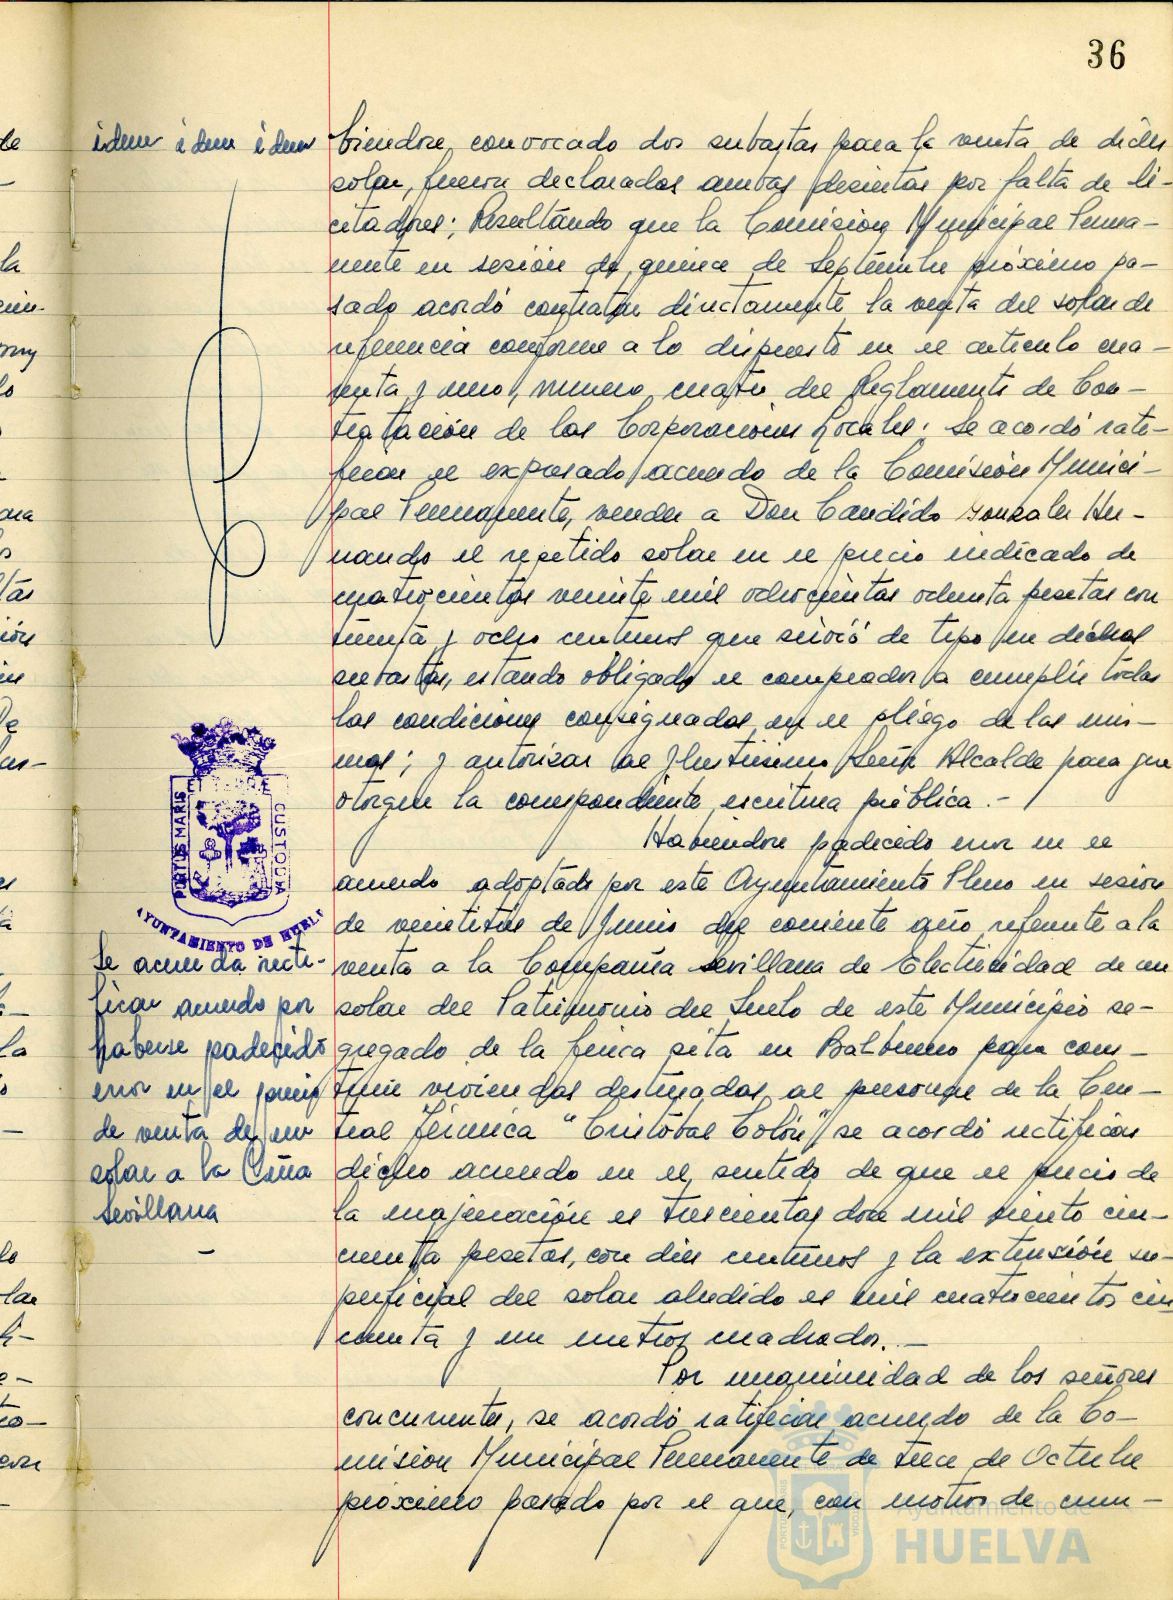 36
idem idem idem
biendose convocado dos subastas para la venta de dicho
solar, fueron declarados ambas desiertas por falta de li-
citadores; Resultando que la Comisión Municipal Perma-
nente en sesión de quince de Septiembre próximo pa-
sado acordó contratar directamente la venta del solar de
referencia conforme a lo dispuesto en el articulo cua-
renta y uno, numero cuatro del Reglamento de Con-
tratación de las Corporaciones Locales; se acordó rati-
ficar el expresado acuerdo de la Comisión Munici-
pal Permanente, vender a Don Candido Gonzalez Her-
nando el repetido solar en el precio indicado de
cuatrocientas veinte mil ochocientas ochenta pesetas con
treinta y ocho centimos que sirvió de tipo en dichas
subastas, estando obligado el comprador a cumplir todas
las condiciones consignadas en el pliego de las mis-
mas; y autorizar al Ilustrisimo Señor Alcalde para que
otorgue la correspondiente escritura pública.-
PORTUS MARIS
CUSTODIA
AYUNTAMIENTO DE HUELV
Se acuerda recti-
ficar acuerdo por
haberse padecido
error en el precio
de venta de un
solar a la Cñia
Sevillana
-
Habiendose padecido error en el
acuerdo adoptado por este Ayuntamiento Pleno en sesion
de veintitres de Junio del corriente año referente a la
venta a la Compañia Sevillana de Electricidad de un
solar del Patrimonio del Suelo de este Municipio se-
gregado de la finca sita en Balbueno para cons-
truir viviendas destinadas al personal de la Cen-
tral Térmica "Cristobal Colón", se acordó rectificar
dicho acuerdo en el sentido de que el precio de
la enajenación es trescientas doce mil ciento cin-
cuenta pesetas, con diez centimos y la extensión su-
perficial del solar aludido es mil cuatrocientos cin
cuenta y un metros cuadrados.-
Por unanimidad de los señores
concurrentes, se acordó ratificar acuerdo de la Co-
mision Municipal Permanente de trece de Octubre
próximo pasado por el que, con motivo de cum-
Ayuntamiento de
HUELVA